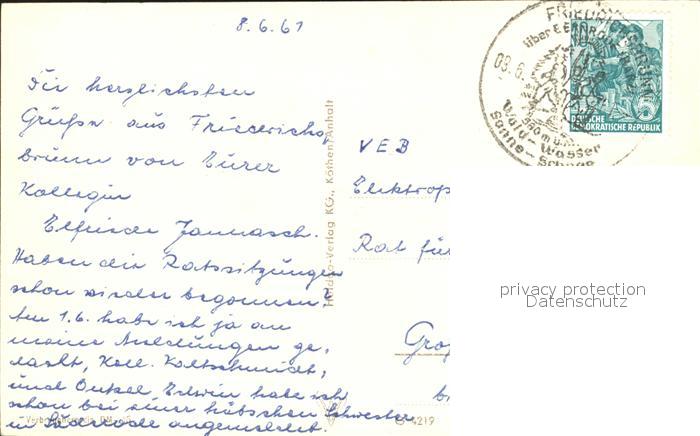 8.6.61
Die herzlichsten
Grüße aus Friedrichs
brunn von Eurer
Kollegin
Elfriede Jannasch.
Haben die Ratssitzungen
schon wieder begonnen?
Am 1.6. habe ich ja an
meine Meldungen ge,
dacht, Koll. Koltschmidt,
und Onkel Edwin habe ich
schon bei einer hübschen Schwester
in Suderode angemeldet.
VEB
Elektrop
Rat für
Gro
b
FRIEDRICHSBRUNN
über
08.6.
Wald - Wasser
Sonne - Schnee
DEUTSCHE
DEMOKRATISCHE REPUBLIK
-Verlag KG., Köthen/Anhalt
4219
privacy protection
Datenschutz